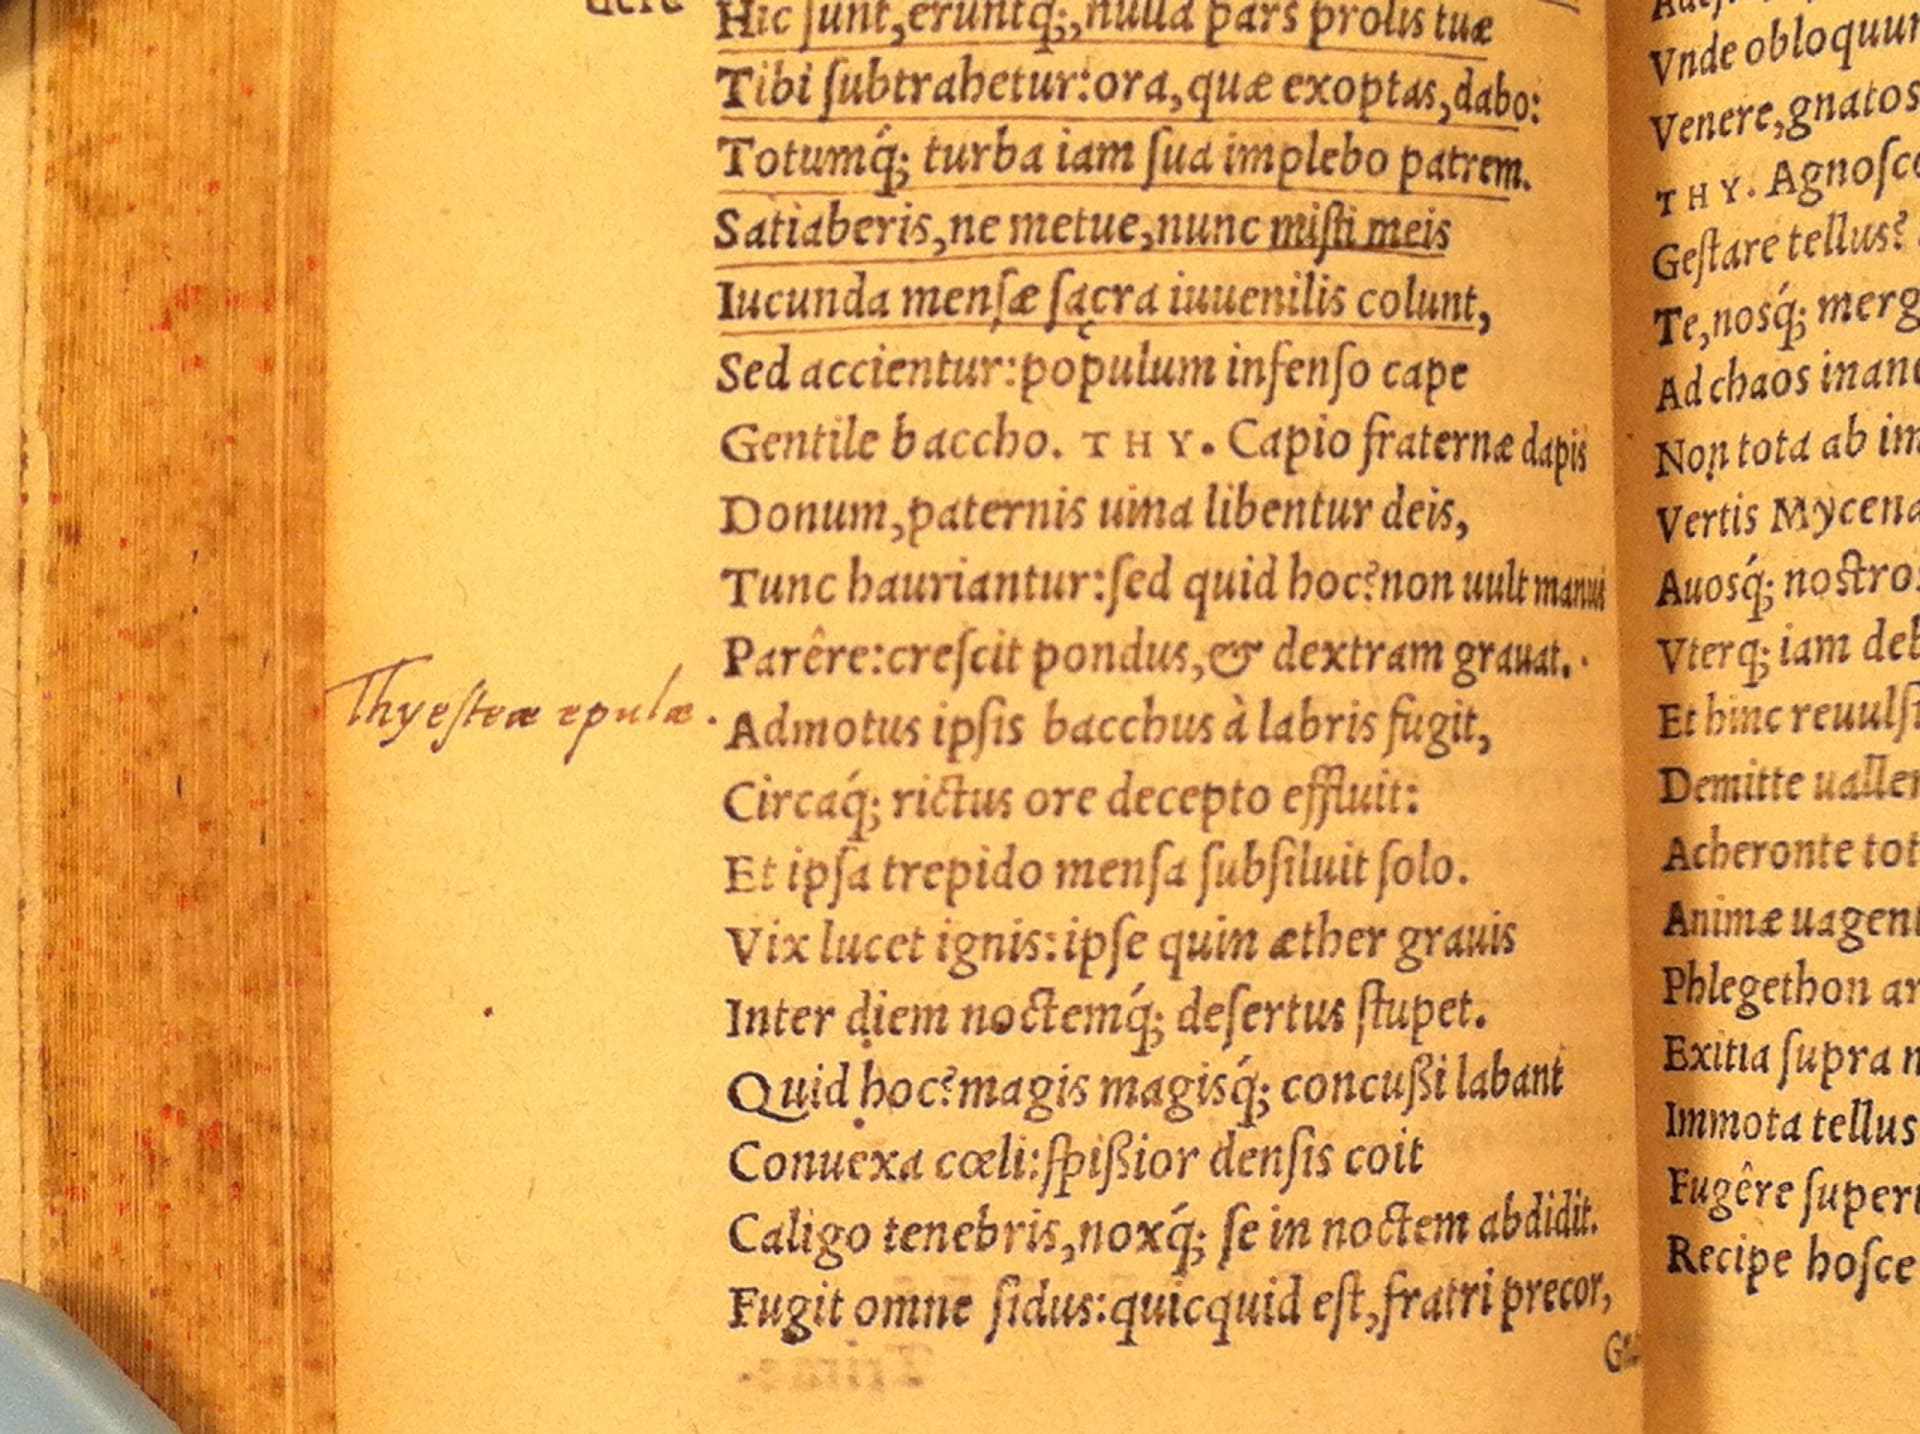 Hic ſunt,eruntq́;,nulla pars prolis tuæ
Tibi ſubtrahetur:ora,quæ exoptas,dabo:
Totumq́; turba iam ſua implebo patrem.
Satiaberis,ne metue,nunc miſti meis
Iucunda menſæ ſacra iuuenilis colunt,
Sed accientur:populum infenſo cape
Gentile baccho. THY. Capio fraternæ dapis
Donum,paternis uina libentur deis,
Tunc hauriantur:ſed quid hoc?non uult manus
Parêre:creſcit pondus,& dextram grauat.
Thyeſteæ epulæ.
Admotus ipſis bacchus à labris fugit,
Circaq́; rictus ore decepto effluit:
Et ipſa trepido menſa ſubſiluit ſolo.
Vix lucet ignis:ipſe quin æther grauis
Inter diem noctemq́; deſertus ſtupet.
Quid hoc?magis magisq́; concußi labant
Conuexa cœli:ſpißior denſis coit
Caligo tenebris,noxq́; ſe in noctem abdidit.
Fugit omne ſidus:quicquid eſt,fratri precor,
Vnde
Venere,gnatos
THY. Agnoſco
Geſtare tellus?
Te,nosq́;
Ad chaos
Non tota ab
Vertis
Auosq́;
Vterq; iam
Et hinc
Demitte
Acheronte
Animæ
Phlegethon
Exitia ſupra
Immota tellus
Fugêre
Recipe hoſce